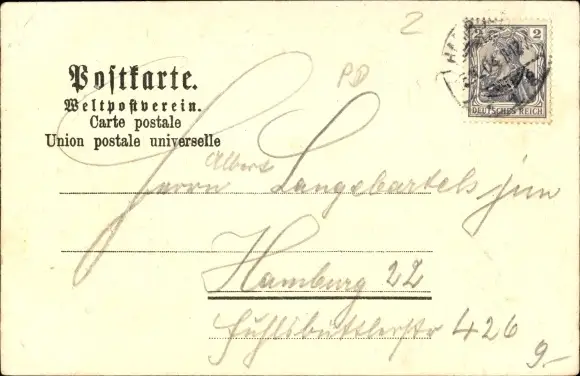 2
2 2
DEUTSCHES REICH
Postkarte.
Weltpostverein.
Carte postale
Union postale universelle
PD
Albert
Herrn Langebartels jun
Hamburg 22
Fuhlsbüttlerstr 426
9.-